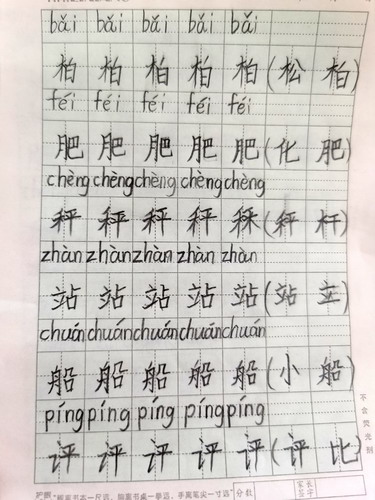 bǎi bǎi bǎi bǎi bǎi
柏 柏 柏 柏 柏(松 柏)
féi féi féi féi féi
肥 肥 肥 肥 肥(化 肥)
chèng chèng chèng chèng chèng
秤 秤 秤 秤 秤(秤 杆)
zhàn zhàn zhàn zhàn zhàn
站 站 站 站 站(站 立)
chuán chuán chuán chuán chuán
船 船 船 船 船(小 船)
píng píng píng píng píng
评 评 评 评 评(评 比)
不含荧光剂
护眼:"眼离书本一尺远,胸离书桌一拳远,手离笔尖一寸远" 分数 家长签字